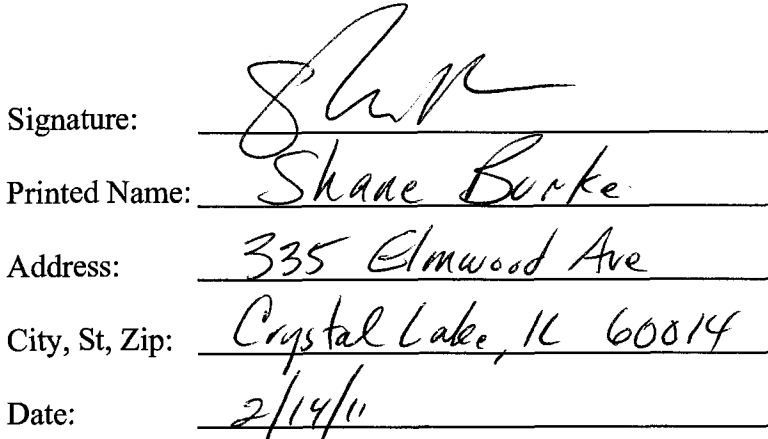 Signature:
Printed Name: Shane Burke
Address: 335 Elmwood Ave
City, St, Zip: Crystal Lake, IL 60014
Date: 2/14/11